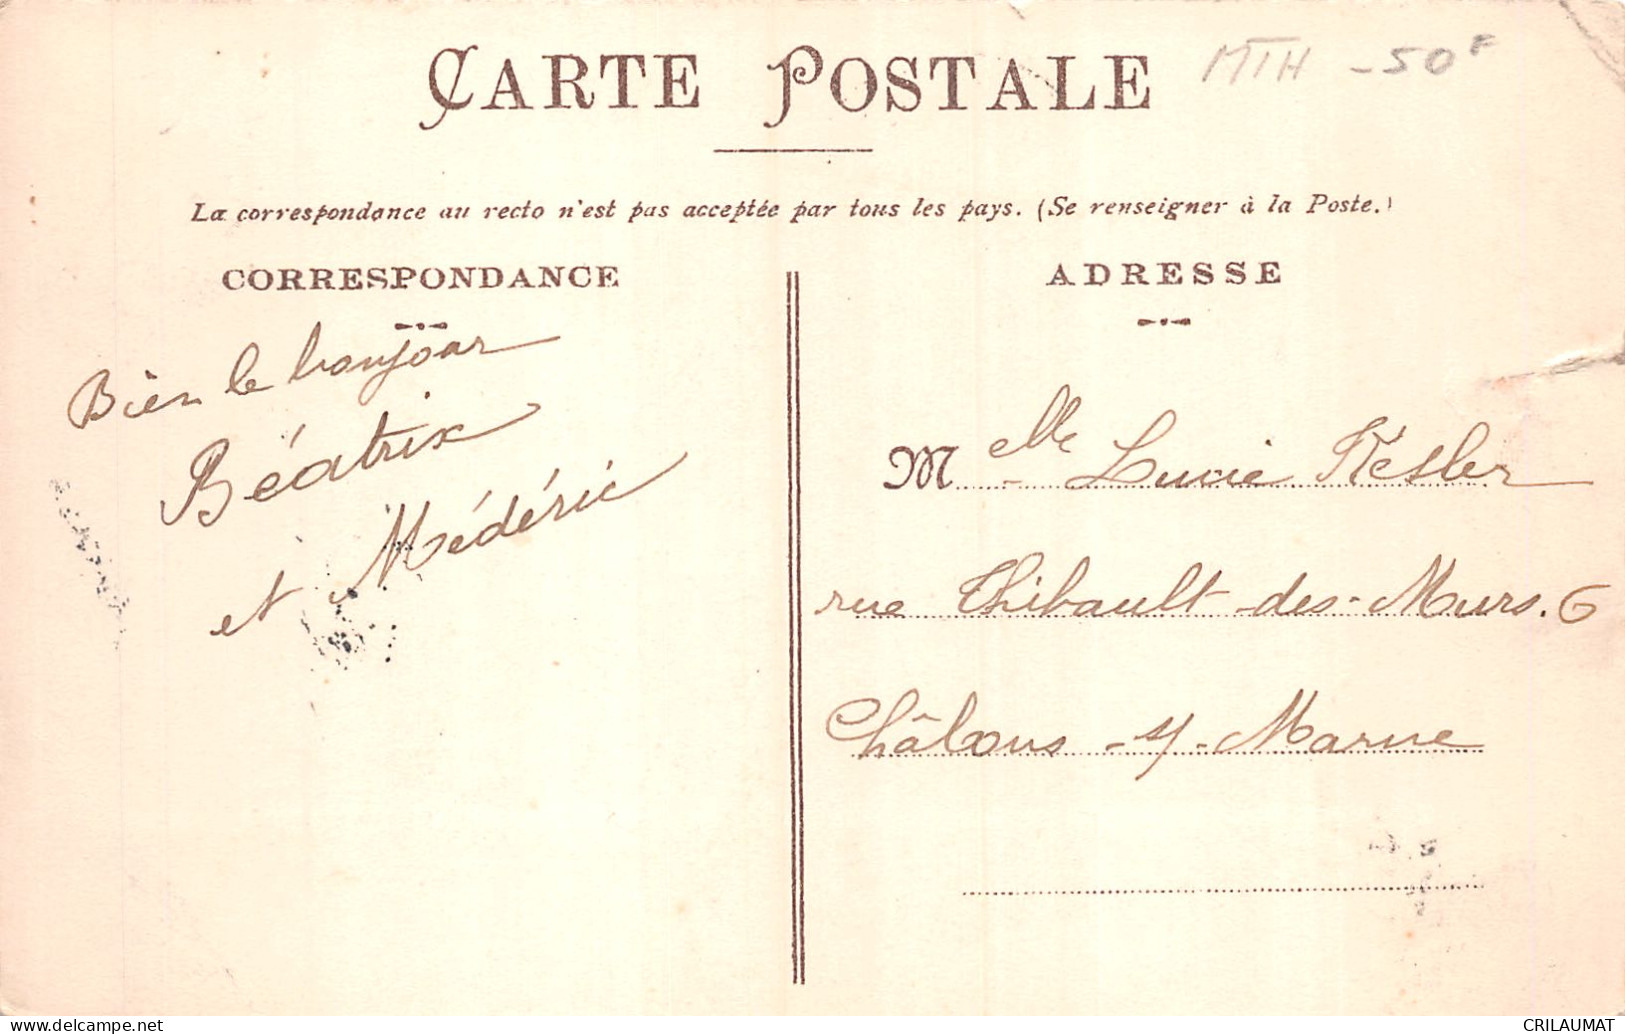 CARTE POSTALE
MTH - 50F
La correspondance au recto n'est pas acceptée par tous les pays. (Se renseigner à la Poste.)
CORRESPONDANCE
Bien le bonjour
Béatrix
et Médéric
ADRESSE
Melle Lucie Kesler
rue Thibault-des-Murs. 6
Châlons-s/-Marne
delcampe.net
CRILAUMAT